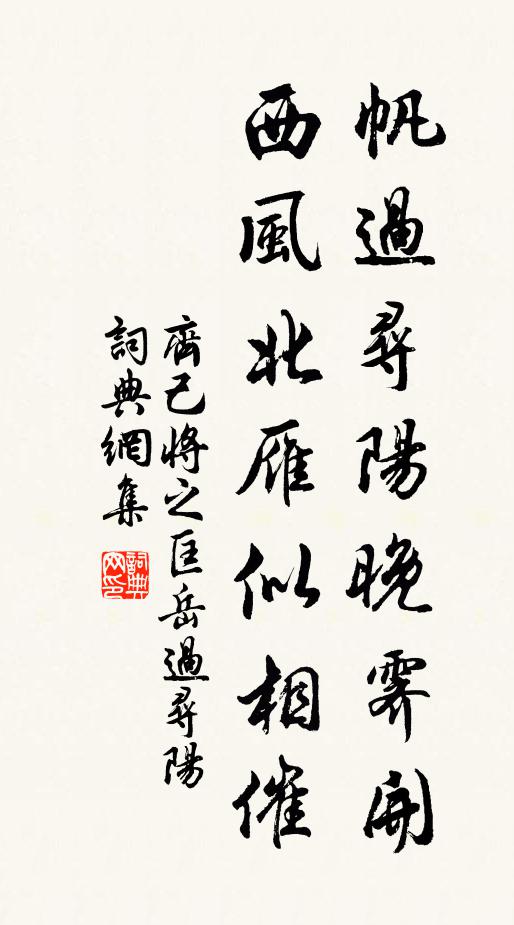 帆過尋陽晚霽開
西風北雁似相催
齊己將之匡岳過尋陽
詞典網集
詞典
网印